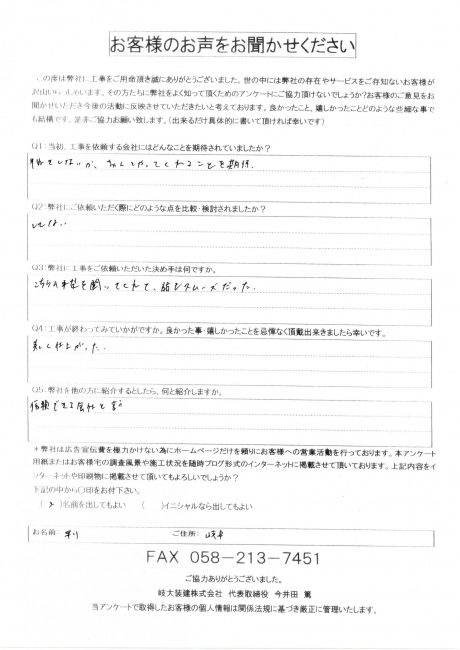 お客様のお声をお聞かせください
この度は弊社に工事をご用命頂き誠にありがとうございました。世の中には弊社の存在やサービスをご存知ないお客様が
沢山いらっしゃいます。その方たちに弊社をよく知って頂くためのアンケートにご協力頂けないでしょうか?お客様のご意見をお
聞かせいただき今後の活動に反映させていただきたいと考えております。良かったこと、嬉しかったことどのような些細な事で
も結構です。是非ご協力お願い致します。(出来るだけ具体的に書いて頂ければ幸いです)
Q1:当初、工事を依頼する会社にはどんなことを期待されていましたか?
してやってくれることを期待。
Q2:弊社にご依頼いただく際にどのような点を比較・検討されましたか?
してない
Q3:弊社に工事をご依頼いただいた決め手は何ですか。
こちらの希望を聞いてくれて、話もスムーズだった。
Q4:工事が終わってみていかがですか。良かった事・嬉しかったことを忌憚なく頂戴出来きましたら幸いです。
美しく仕上がった。
Q5:弊社を他の方に紹介するとしたら、何と紹介しますか。
信頼できる会社と言う
*弊社は広告宣伝費を極力かけない為にホームページだけを頼りにお客様への営業活動を行っております。本アンケート
用紙またはお客様宅の調査風景や施工状況を随時ブログ形式のインターネットに掲載させて頂いております。上記内容をイ
ンターネットや印刷物に掲載させて頂いてもよろしいでしょうか?
下記の中から〇印をお付下さい。
( )名前を出してもよい ( )イニシャルなら出してもよい
お名前: ご住所:岐阜
FAX 058-213-7451
ご協力ありがとうございました。
岐大装建株式会社 代表取締役 今井田 篤
当アンケートで取得したお客様の個人情報は関係法規に基づき厳正に管理いたします。